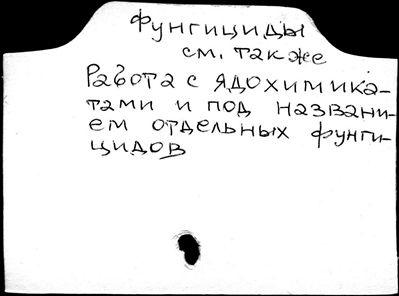 Фунгициды
см. также
Работа с ядохимика-
тами и под названи-
ем отдельных фунги-
цидов